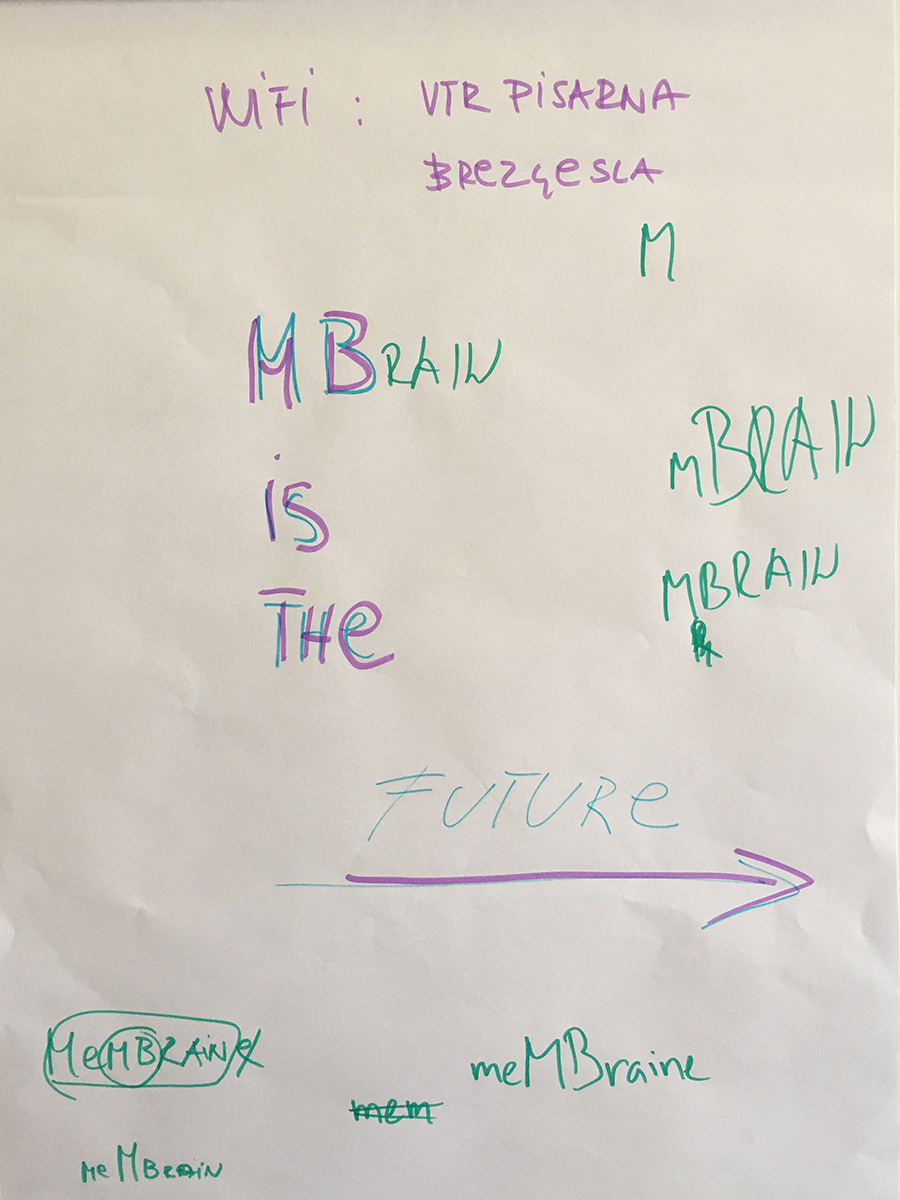 WiFi : VTR PiSARNA
BReZGeSLA
M
MBRAIN
mBRAIN
is
MBRAIN
THe
FUTURe
MeMBRAiNe
meMBraine
mem
MeMBRAiN